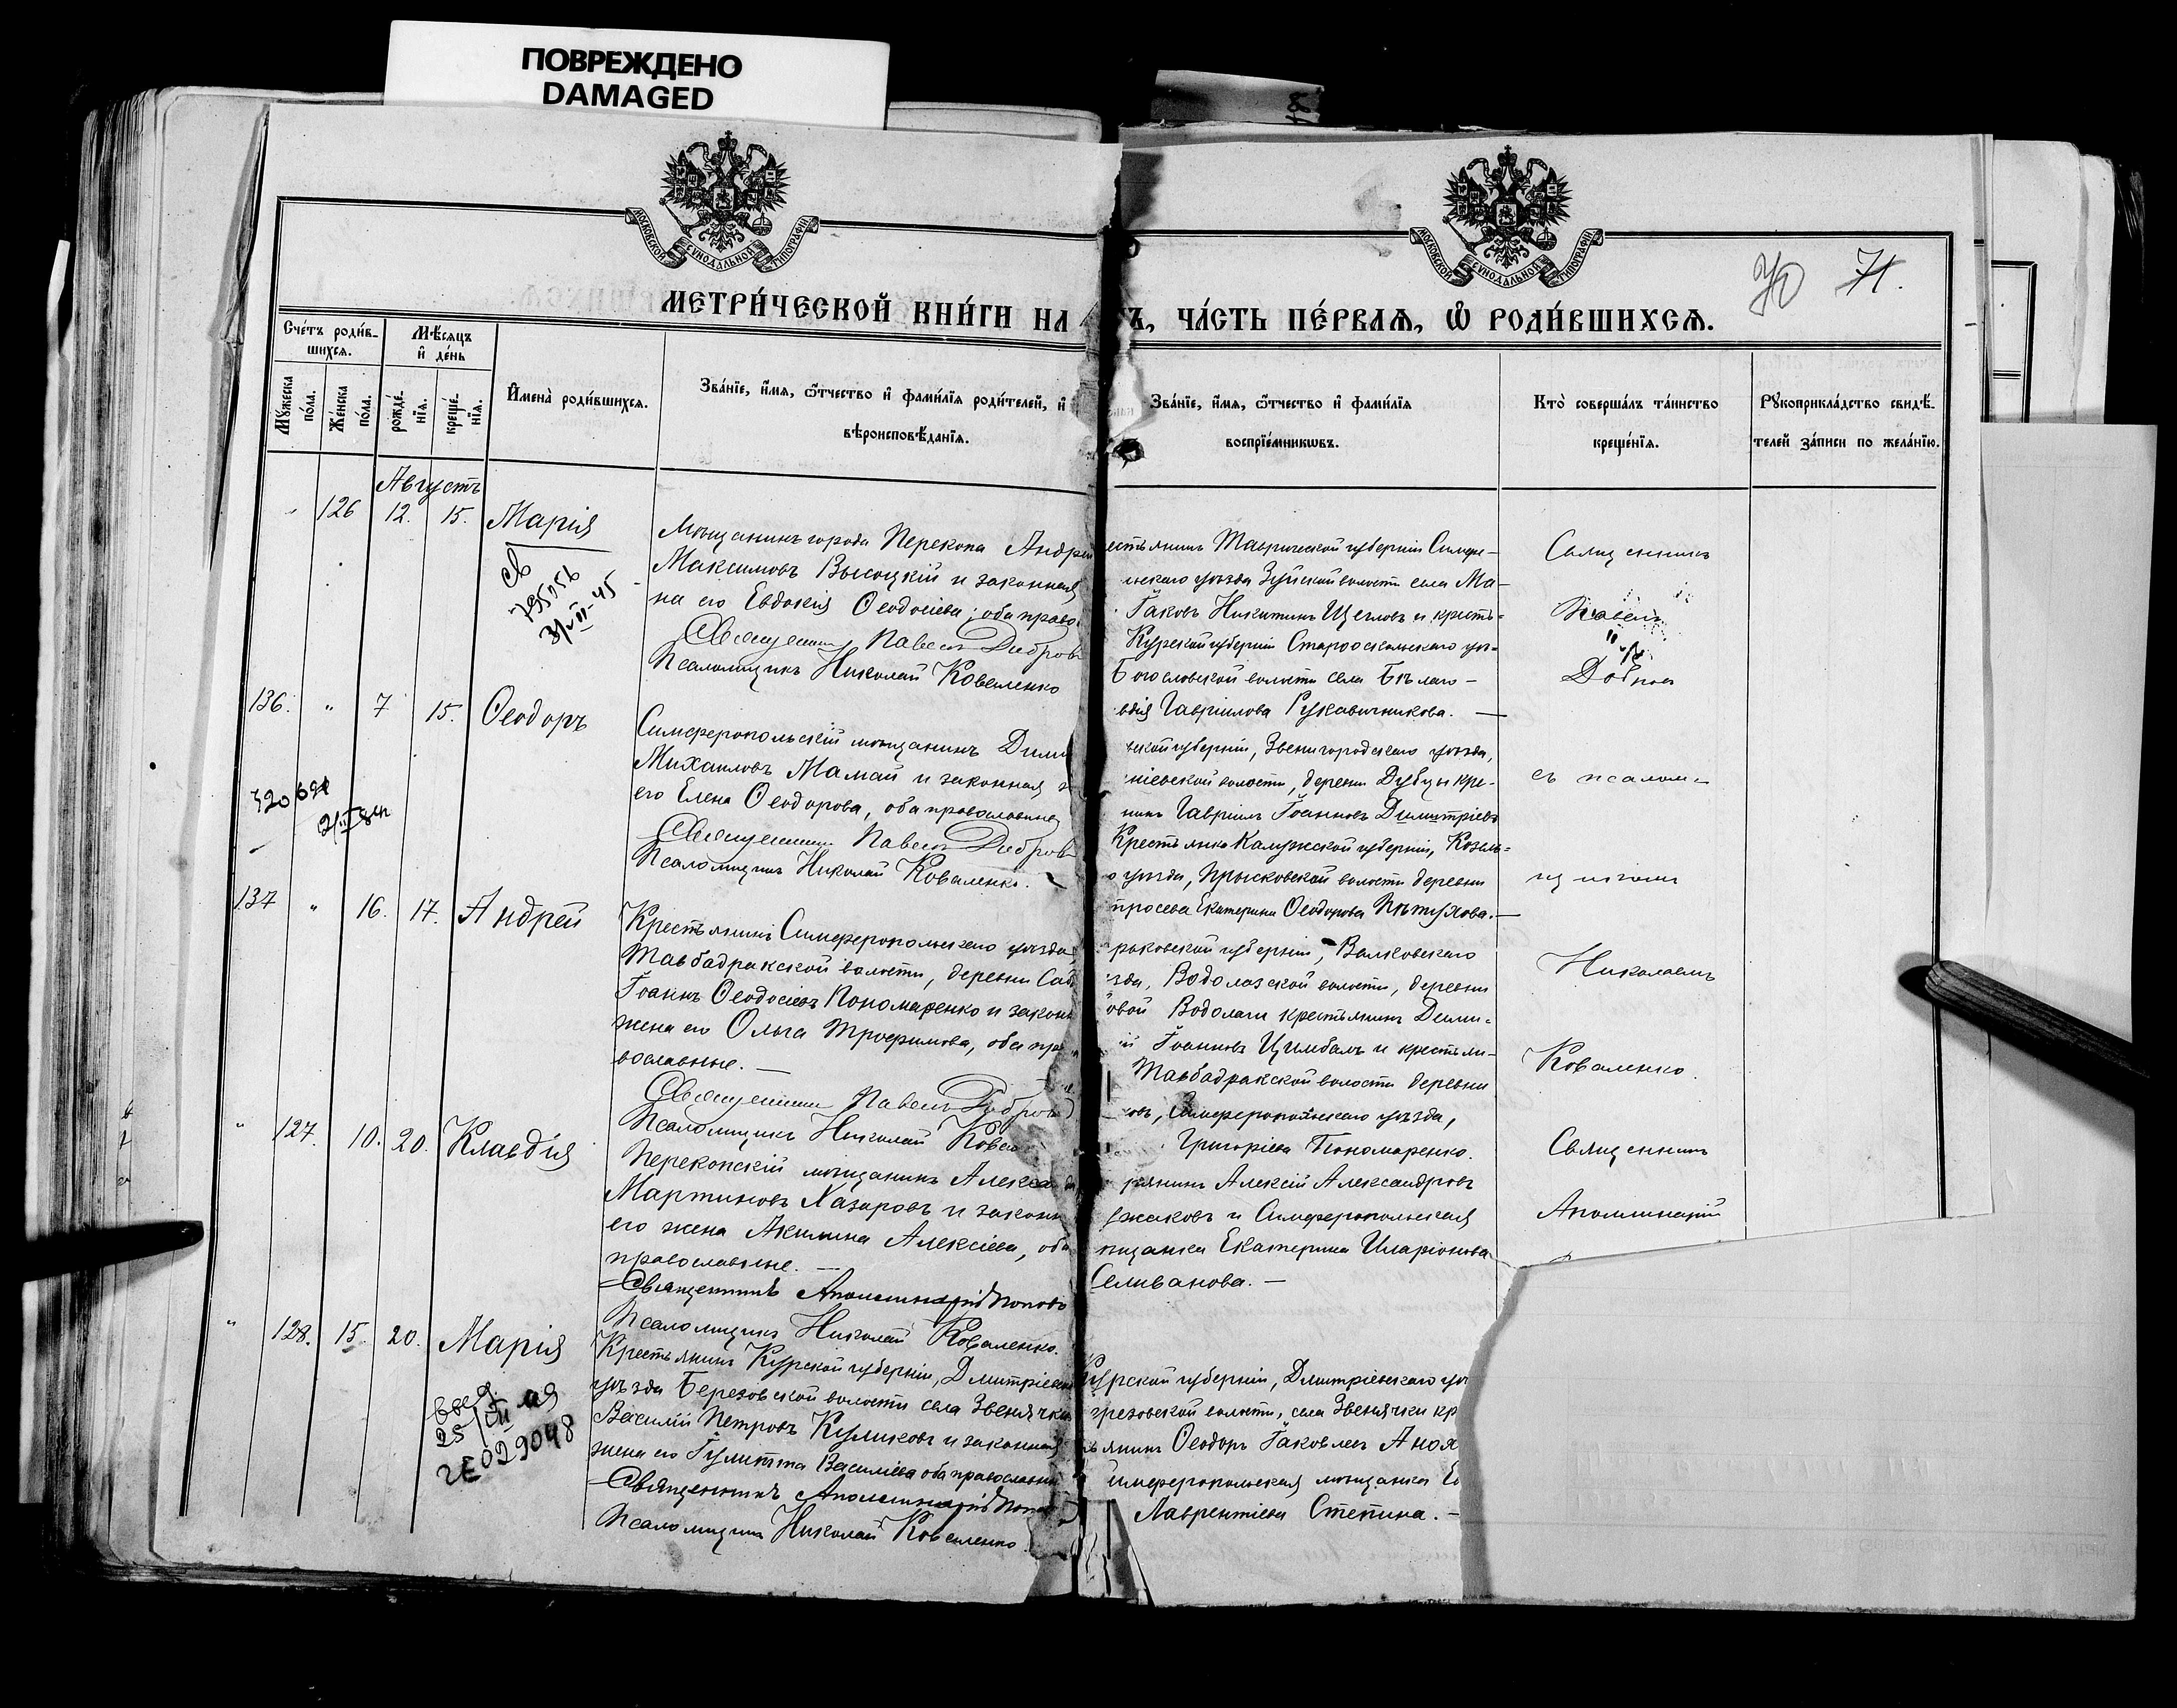 ПОВРЕЖДЕНО
DAMAGED
МОСКОВСКОЙ СѴНОДАЛЬНОЙ ТИПОГРАФІИ
МОСКОВСКОЙ СѴНОДАЛЬНОЙ ТИПОГРАФІИ
70 71.
МЕТРИ́ЧЕСКОЙ КНИ́ГИ НА
Ъ, ЧА́СТЬ ПЕ́РВАѦ, Ѡ҆ РОДИ́ВШИХСѦ.
Сче́тъ роди́в-
шихсѧ.
Мѣ́сѧцъ
и҆ де́нь
Мꙋ́жеска
по́ла.
Же́нска
по́ла.
рожде́-
нїѧ.
креще́-
нїѧ.
И҆мена̀ роди́вшихсѧ.
Зва́нїе, и҆́мѧ, ѻ҆́тчество и҆ фами́лїѧ роди́телей, и҆
вѣроисповѣ́данїѧ.
Зва́нїе, и҆́мѧ, ѻ҆́тчество и҆ фами́лїѧ
воспрїе́мникѡвъ.
Кто̀ соверша́лъ та́инство
креще́нїѧ.
Рꙋкоприкла́дство свидѣ́-
телей за́писи по жела́нїю.
Августъ
126 12. 15. Марія
св
795056
31/VII-45
Мѣщанинъ города Перекопа Андрей
Максимовъ Высоцкій и законная
на его Евдокія Ѳеодосіева; оба право
Священникъ Павелъ Добровъ
Псаломщикъ Николай Коваленко
естьянинъ Таврической губерніи Симфе-
льскаго уѣзда Зуйской волости села Ма-
Іаковъ Никитинъ Щегловъ и кресть-
Курской губерніи Старооскольскаго уѣ-
Богословской волости села Бѣлаго-
вдія Гавріилова Рукавичникова. —
Священникъ
Павелъ
136. " 7 15. Ѳеодоръ
Симферопольскій мѣщанинъ Дими
Михаиловъ Мамай и законная
его Елена Ѳеодорова, оба православные
Священникъ Павелъ Добровъ
Псаломщикъ Николай Коваленко.
ской губерніи, Звенигородскаго уѣзда,
ніевской волости, деревни Дубцы кре-
нинъ Гавріилъ Іоанновъ Димитріевъ
Крестьянка Калужской губерніи, Козель-
о уѣзда, Прысковской волости деревни
просева Екатерина Ѳеодорова Пѣтухова. —
съ псалом-
щикомъ
137 " 16. 17. Андрей
Крестьянинъ Симферопольскаго уѣзда,
Тавбадракской волости, деревни Саб
Іоаннъ Ѳеодосіевъ Пономаренко и законн
жена его Ольга Трофимова, оба пра
вославные. —
Священникъ Павелъ Добровъ
Псаломщикъ Николай Ковал
рьковской губерніи, Валковскаго
зда, Водолазской волости, деревни
овой Водолаги крестьянинъ Дими-
ій Іоанновъ Цимбалъ и крестьян-
Тавбадракской волости деревни
овъ, Симферопольскаго уѣзда,
Григоріева Пономаренко.
Николаемъ
Коваленко.
" 127. 10. 20. Клавдія
Перекопскій мѣщанинъ Алекса
Мартиновъ Хазаровъ и законн
его жена Акилина Алексіева, оба
православные. —
Священникъ Аполлинарій Поповъ
Псаломщикъ Николай Коваленко.
рянинъ Алексій Александровъ
ржаковъ и Симферопольская
щанка Екатерина Иларіонова
Селиванова. —
Священникъ
Аполлинарій
" 128. 15. 20. Марія
029048
Крестьянинъ Курской губерніи, Дмитріевск
уѣзда Березовской волости села Звенячки
Василій Петровъ Куликовъ и законная
жена его Іулитта Василіева оба православные
Священникъ Аполлинарій Попов
Псаломщикъ Николай Коваленко
Курской губерніи, Дмитріевскаго уѣ
ерезовской волости, села Звенячки кр
ьянинъ Ѳеодоръ Іаковлевъ Аноя
имферопольская мѣщанка Е
Лаврентіева Степина. —